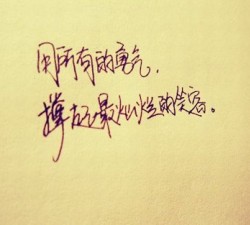 用所有的勇气，
撑起最灿烂的笑容。